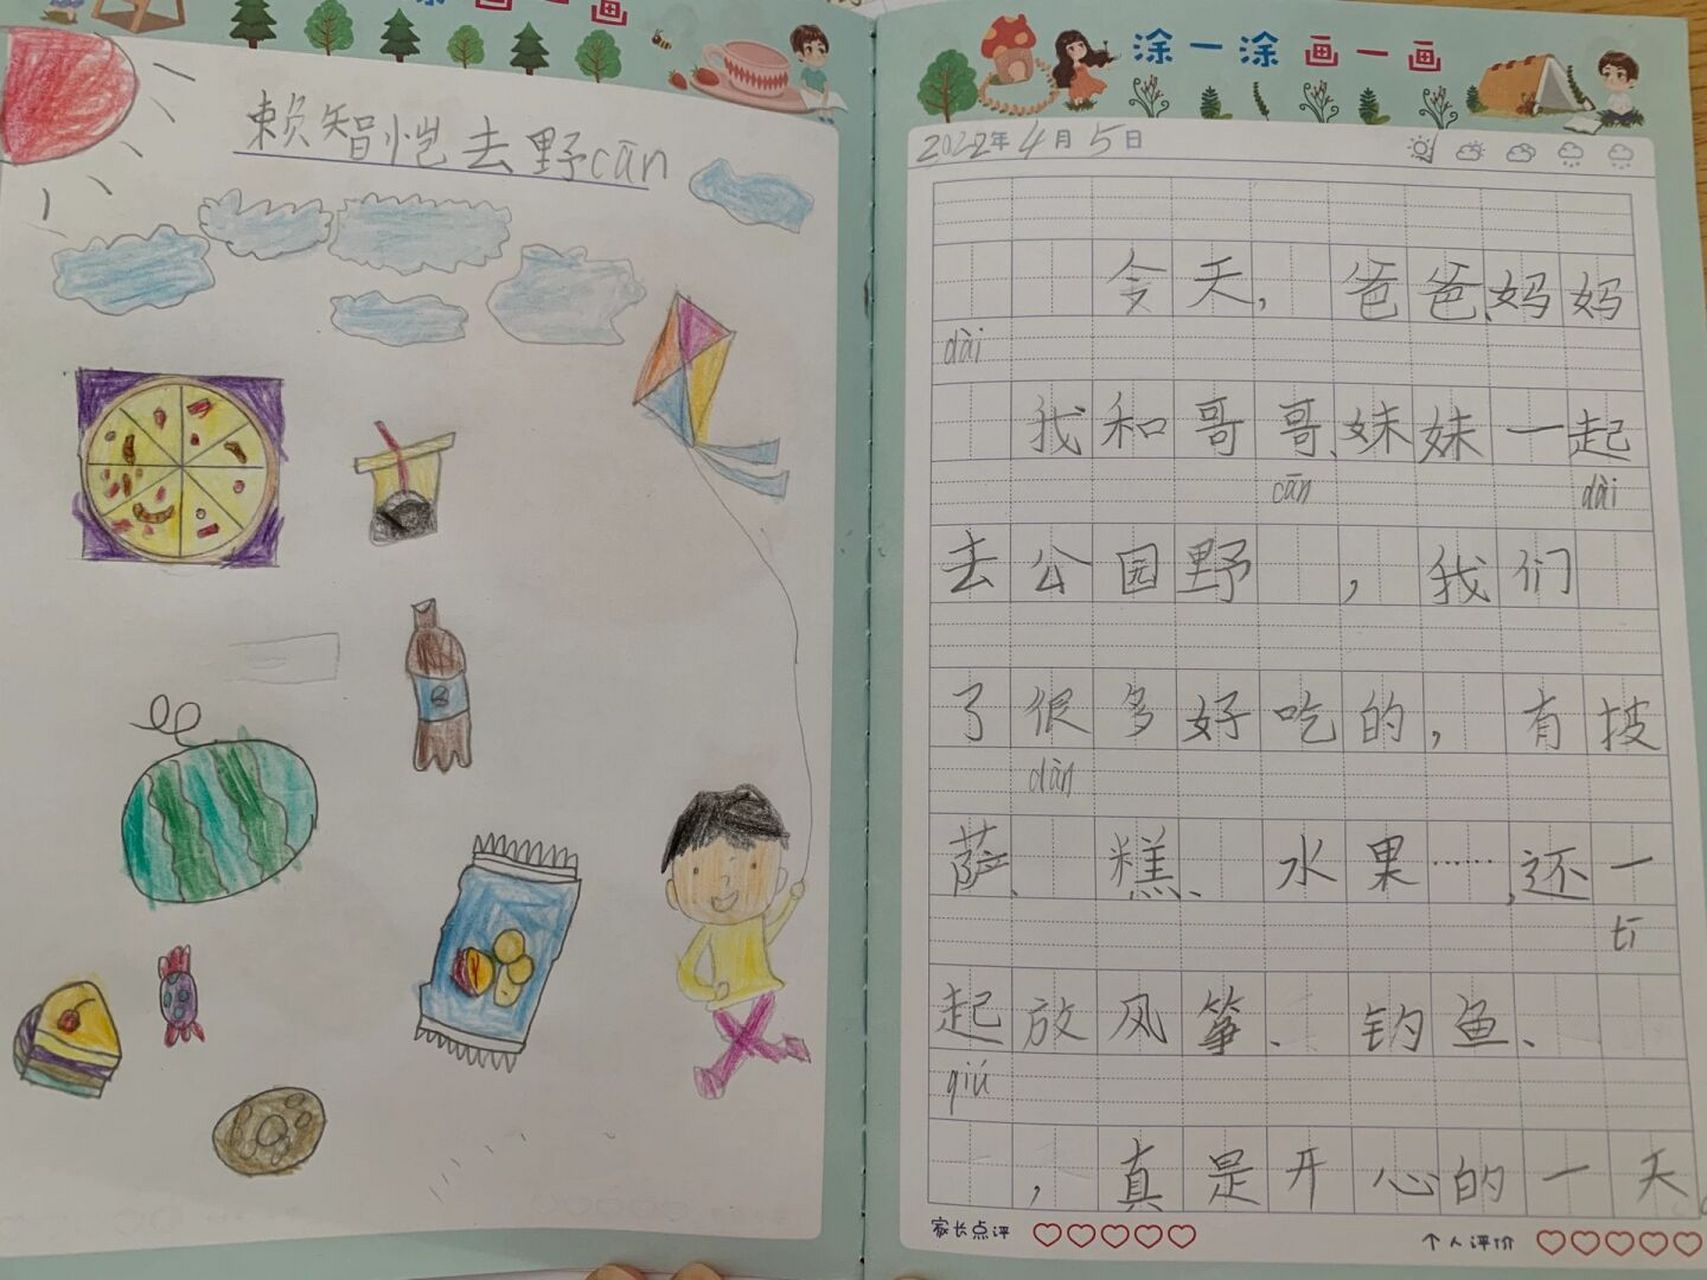 涂一涂画一画
赖智恺去野cān
涂一涂画一画
2022年4月5日
今天，爸爸、妈妈
dài
我和哥哥、妹妹一起
cān dài
去公园野，我们
了很多好吃的，有披
dàn
萨、糕、水果……，还一
tī
起放风筝、钓鱼、
qiú
，真是开心的一天
家长点评 个人评价